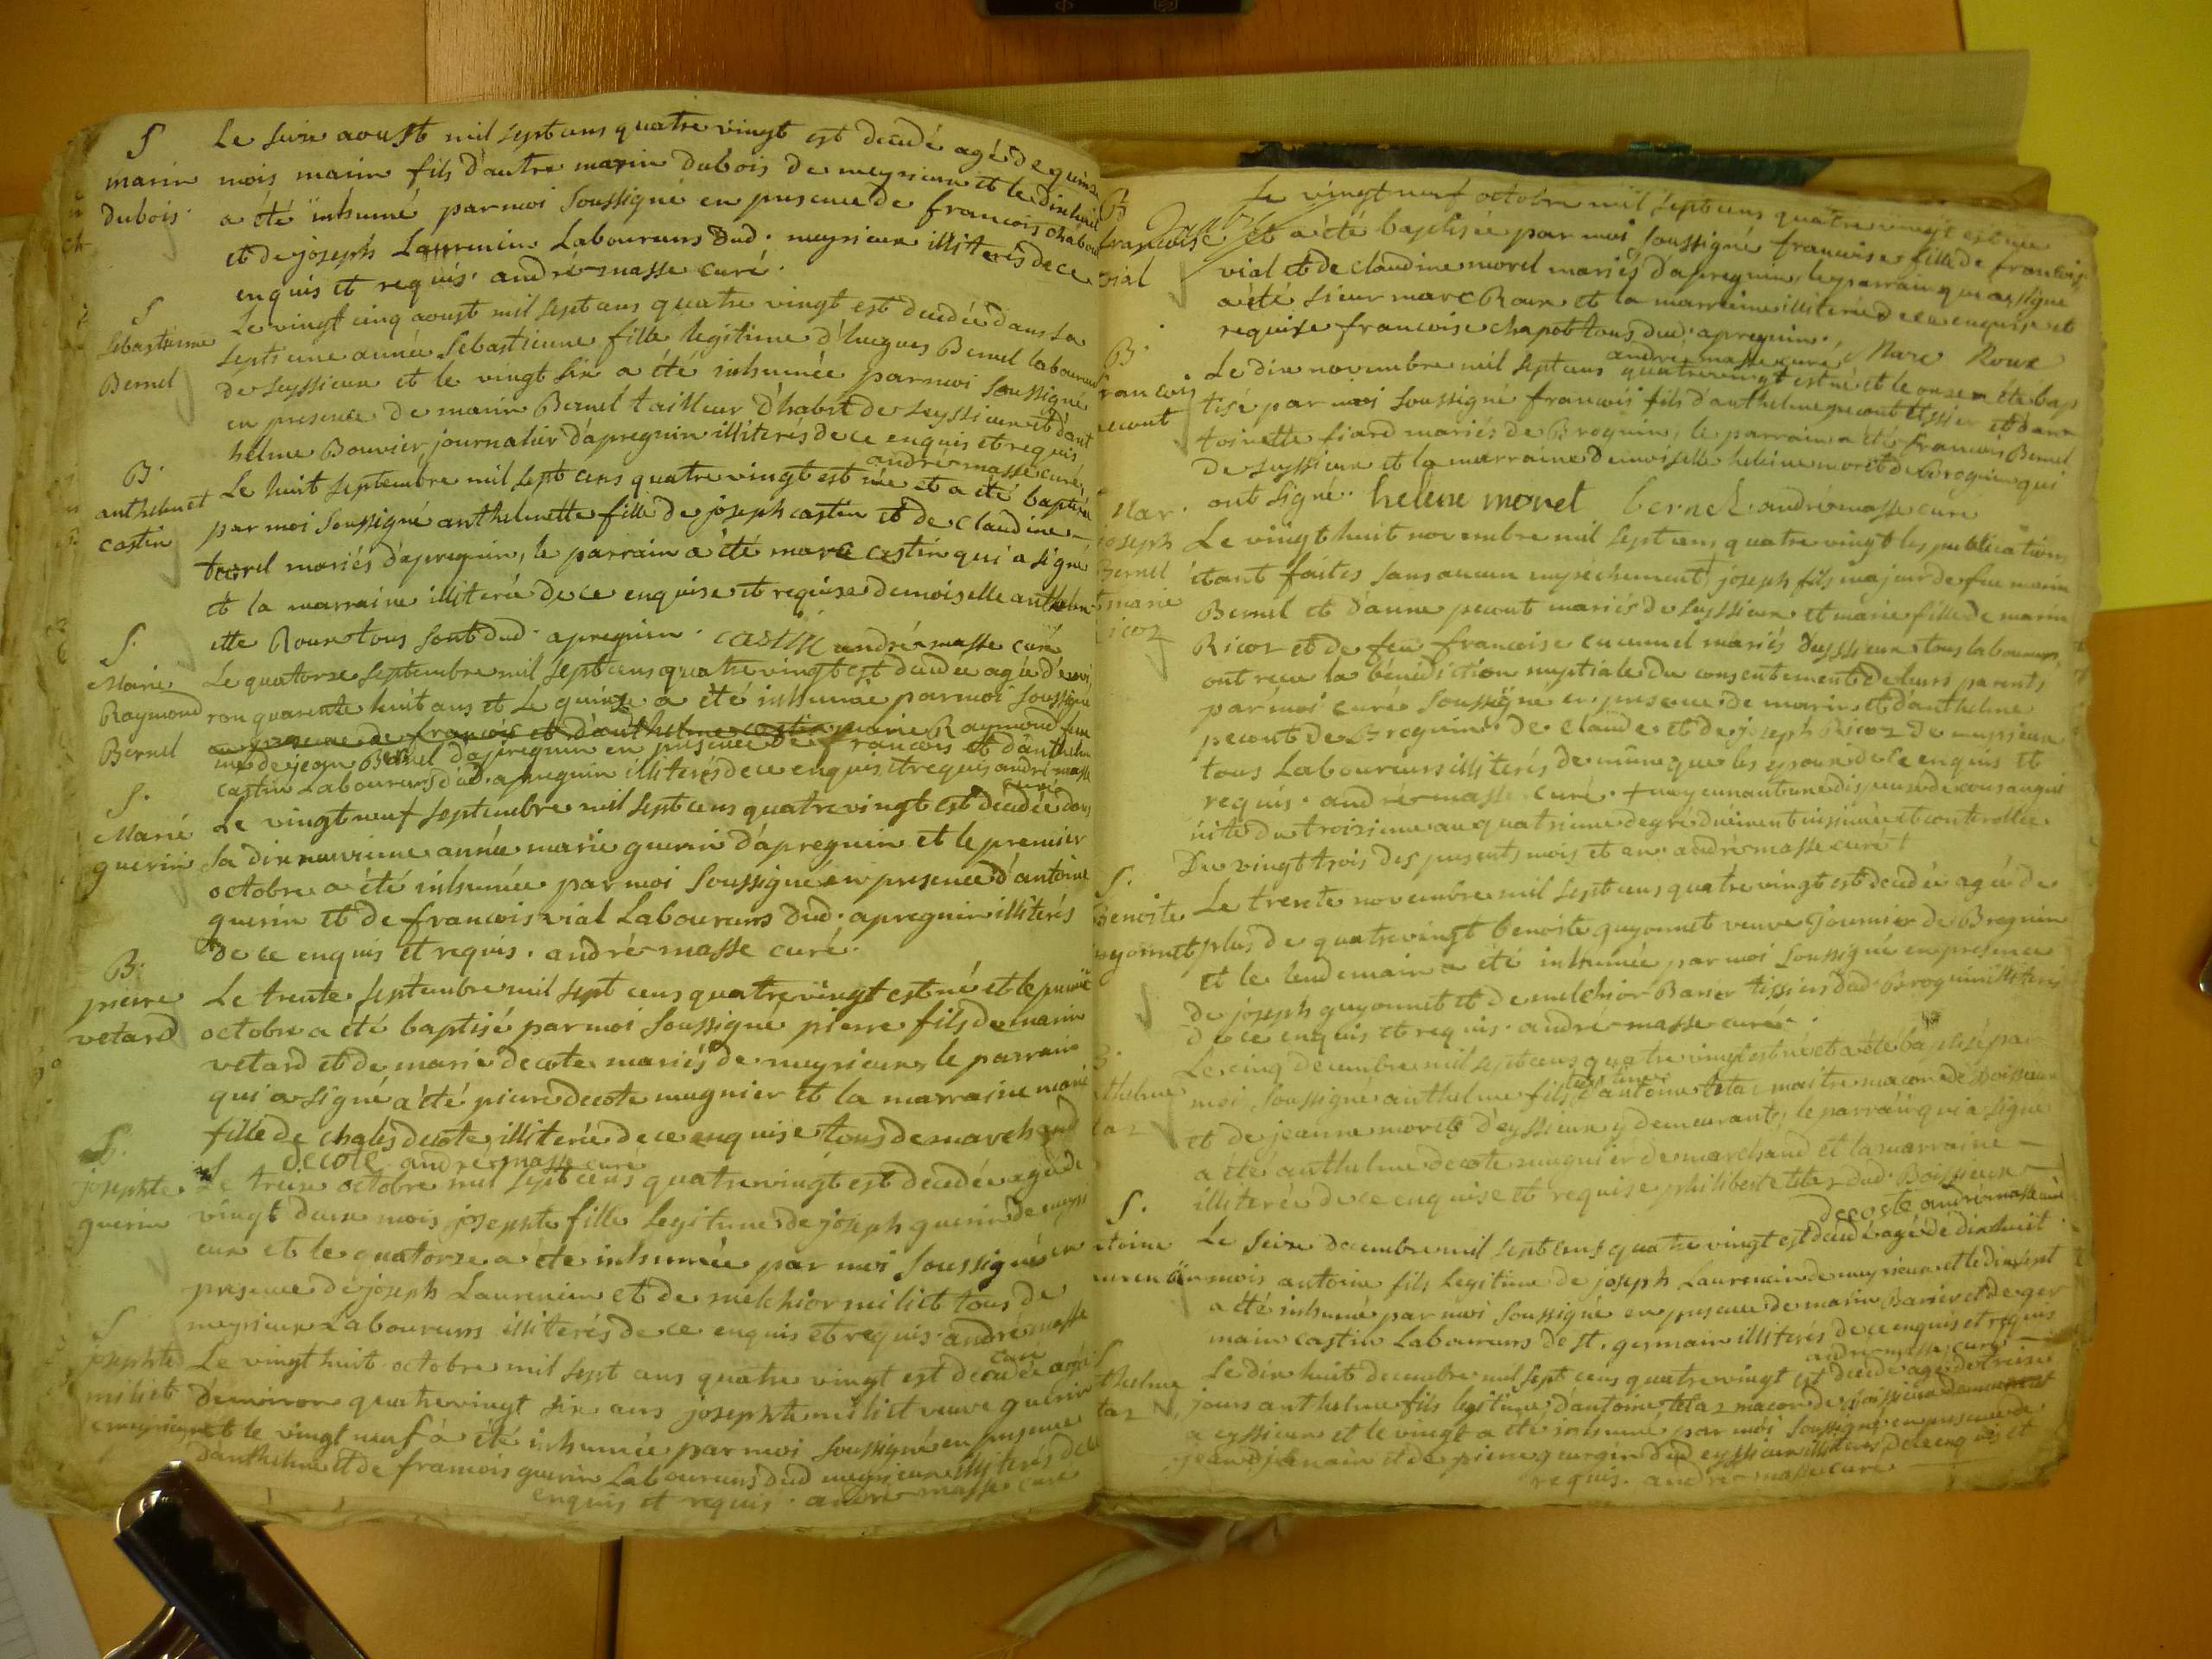 S
marin
dubois
Le seize aoust mil sept cens quatre vingt est decedé agé de quinze
mois marin fils d'autre marin dubois de meyrieux et le dix huit
a été inhumé par moi soussigné en presence de francois chabou
et de joseph Laurencin Laboureurs dud. meyrieux illiterés de ce
enquis et requis. andré masse curé.
S
sebastienne
Bernel
Le vingt cinq aoust mil sept cens quatre vingt est decedée dans sa
septieme année sebastienne fille legitime d'hugues Bernel laboureur
de seyssieux et le vingt six a été inhumée par moi soussigné
en presence de marin Bernel tailleur d'habit de seyssieux et d'ant
helme Bouvier journalier d'apregnin illiterés de ce enquis et requis
andré masse curé
B.
anthelmet
castin
Le huit septembre mil sept cens quatre vingt est née et a été baptisée
par moi soussigné anthelmette fille de joseph castin et de claudine
mariés d'apregnin, le parrain a été marc castin qui a signé
et la marraine illiterée de ce enquise et requise demoiselle anthelm
ette Roux tous sont dud. apregnin. castin andré masse curé
S.
Marie
Raymond
Bernel
Le quatorze septembre mil sept cens quatre vingt est decedée agée d'envi
ron quarente huit ans et le quinze a été inhumée par moi soussigné
en presence de francois et d'anthelme castin marie Raymond fem
me de jean Bernel d'apregnin en presence de francois et d'anthelm
castin Laboureurs dud. apregnin illiterés de ce enquis et requis andré masse
curé
S.
Marie
guerin
Le vingt neuf septembre mil sept cens quatre vingt est decedée dans
sa dix neuvieme année marie guerin d'apregnin et le premier
octobre a été inhumée par moi soussigné en presence d'antoine
guerin et de francois vial Laboureurs dud. apregnin illiterés
de ce enquis et requis. andré masse curé.
B.
pierre
vetard
Le trente septembre mil sept cens quatre vingt est né et le premie
octobre a été baptisé par moi soussigné pierre fils de marin
vetard et de marie decote mariés de meyrieux, le parrain
qui a signé a été pierre decote mugnier et la marraine marie
fille de chales decote illiterée de ce enquise tous de marchand
decote andré masse curé
S.
josephte
guerin
Le treize octobre mil sept cens quatre vingt est decedée agée de
vingt deux mois josephte fille legitime de joseph guerin de meyri
eux et le quatorze a été inhumée par moi soussigné en
presence de joseph Laurencin et de melchior miliet tous de
meyrieux Laboureurs illiterés de ce enquis et requis andré masse
curé
S
josephte
miliet
meyrieux
Le vingt huit octobre mil sept cens quatre vingt est decedée agée
d'environ quatre vingt six ans josephte miliet veuve guerin
et le vingt neuf a été inhumée par moi soussigné en presence
d'anthelme et de francois guerin Laboureurs dud meyrieux illiterés de ce
enquis et requis. andré masse curé
B
francoise
vial
Le vingt neuf octobre mil sept cens quatre vingt est née
et a été baptisée par moi soussigné francoise fille de francois
vial et de claudine morel mariés d'apregnin, le parrain qui a signé
a été sieur marc Roux et la marraine illiterée de ce enquise et
requise francoise chapot tous dud. apregnin.
andré masse curé Marc Roux
B.
francois
pecout
Le dix novembre mil sept cens quatre vingt est né et le onze a été bap
tisé par moi soussigné francois fils d'anthelme pecout tissier et d'an
toinette fiard mariés de Brognin, le parrain a été francois Bernel
de seyssieux et la marraine demoiselle heleine moret de brognin qui
ont signé. helene morel bernel andré masse curé
Mar.
joseph
Bernel
et marie
Ricoz
Le vingt huit novembre mil sept cens quatre vingt les publications
étant faites sans aucun empéchement joseph fils majeur de feu marin
Bernel et d'anne pecout mariés de seyssieux et marie fille de marin
Ricoz et de feu francoise mariés tous laboureurs
ont recu la bénédiction nuptiale du consentement de leurs parents
par moi curé soussigné en presence de marin et d'anthelme
pecout de Brognin de claude et de joseph Ricoz de meyrieux
tous Laboureurs illiterés de même que les epoux de ce enquis et
requis. andré masse curé. + moyennant une dispense de consangui
nité du troisieme au quatrieme degré duëment insinuée et controllée
Du vingt trois des presents mois et an. andré masse curé
S.
Benoite
guyonnet
Le trente novembre mil sept cens quatre vingt est decedée agée de
plus de quatre vingt benoite guyonnet veuve journier de Brognin
et le lendemain a été inhumée par moi soussigné en presence
de joseph guyonnet et de melchior Barier tissiers dud. brognin illiterés
de ce enquis et requis. andré masse curé.
B.
Le cinq decembre mil sept cens quatre vingt est né et a été baptisé par
legitime
moi soussigné anthelme fils d'antoine tetaz maitre macon de
et de jeanne morel d'eyssieux y demeurants, le parrain qui a signé
a été anthelme decote mugnier de marchand et la marraine
illiterée de ce enquise et requise philiberte tetaz dud.
decoste andré masse curé
S.
antoine
Laurencin
Le seize decembre mil sept cens quatre vingt est decedé agé de dix huit
mois antoine fils legitime de joseph Laurencin de meyrieux et le dix sept
a été inhumé par moi soussigné en presence de marin Barier et de ger
main castin Laboureurs de st. germain illiterés de ce enquis et requis
andré masse curé
S
anthelme
tetaz
Le dix huit decembre mil sept cens quatre vingt est decedé agé de treize
jours anthelme fils legitime d'antoine tetaz macon de demeurant
a eyssieux et le vingt a été inhumé par moi soussigné en presence de
et de pierre dud eyssieux illiterés de ce enquis et
requis. andré masse curé